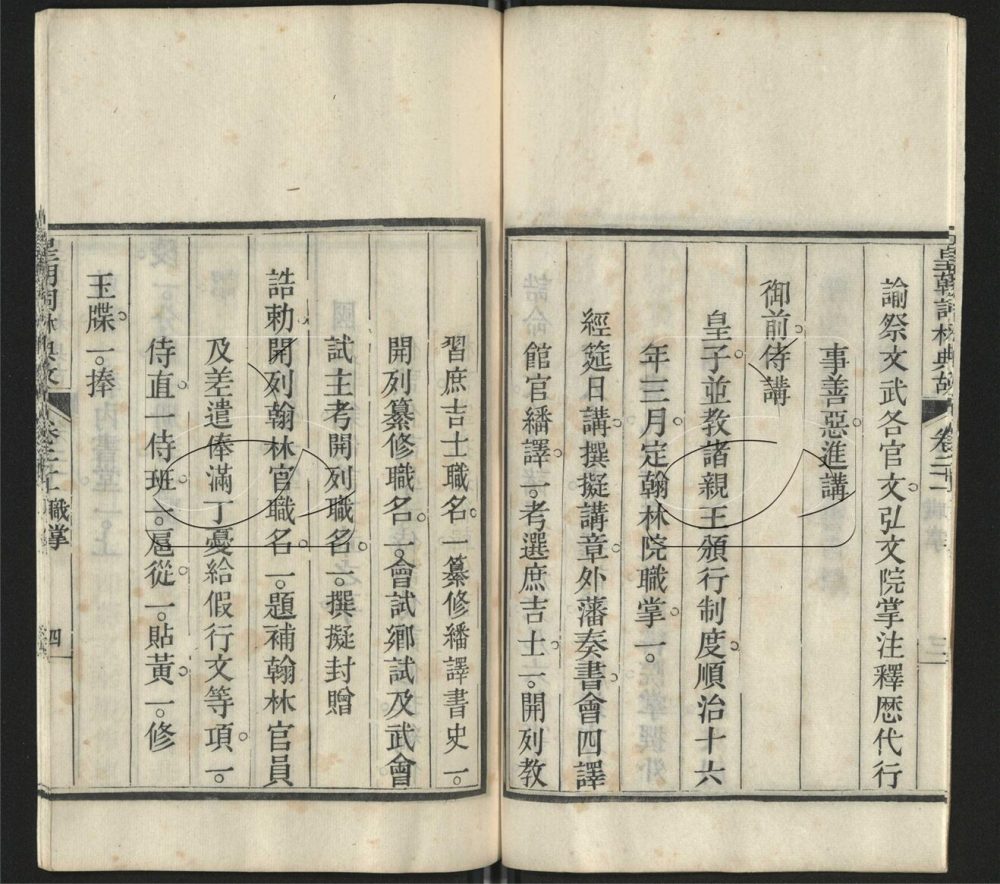 諭祭文武各官文。弘文院掌注釋歷代行
事善惡進講
御前侍講
皇子並教諸親王頒行制度。順治十六
年三月。定翰林院職掌。一。
經筵日講。撰擬講章。外藩奏書。會四譯
館官繙譯。一。考選庶吉士。一。開列教
習庶吉士職名。一纂修繙譯書史一。
開列纂修職名。一。會試鄉試及武會
試主考開列職名。一。撰擬封贈
誥勅。開列翰林官職名。一。題補翰林官員
及差遣俸滿丁憂給假行文等項。一。
侍直一侍班。一。扈從。一。貼黃。一。修
玉牒。一。捧
職掌
四